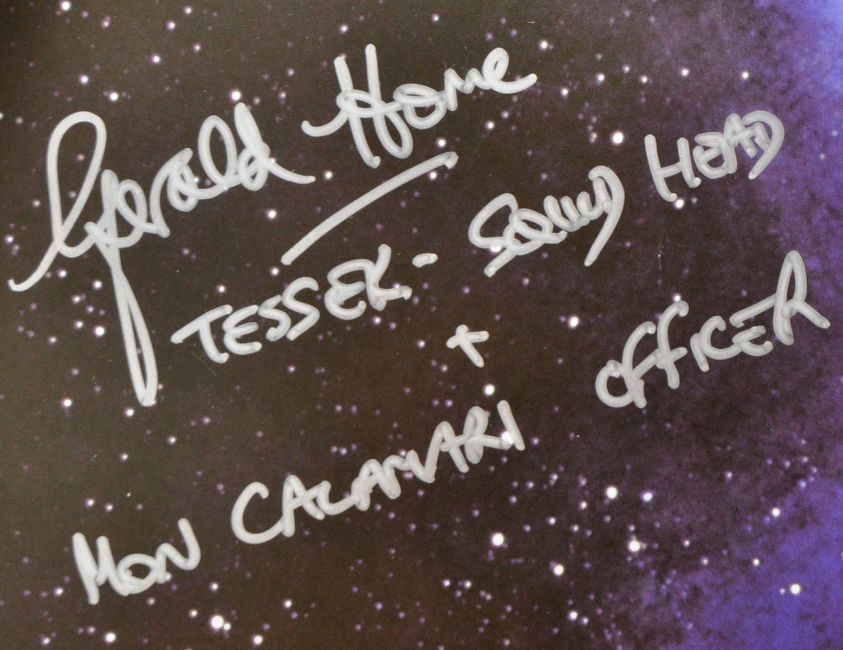 Gerald Home
TESSEK - Squid HEAD
+
MON CALAMARI OFFICER